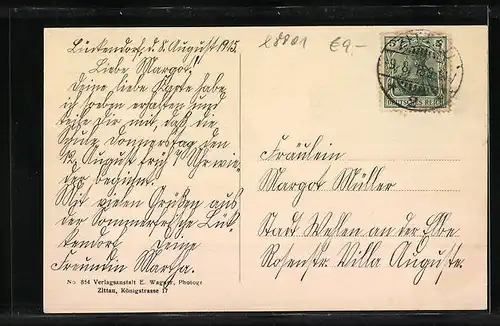 Lückendorf, d. 8. August 1915.
Liebe Margot!
Deine liebe Karte habe
ich soeben erhalten und
teile Dir mit, daß die
Schule Donnerstag den
12. August früh 7 Uhr wie-
der beginnt.
Mit vielen Grüßen aus
der Sommerfrische Lük-
kendorf Deine
Freundin Martha.
No. 854 Verlagsanstalt E. Wagner, Photogr
Zittau, Königstrasse 17
€9.-
DEUTSCHES REICH
Fräulein
Margot Müller
Stadt Wehlen an der Elbe
Rosenstr. Villa Auguste.